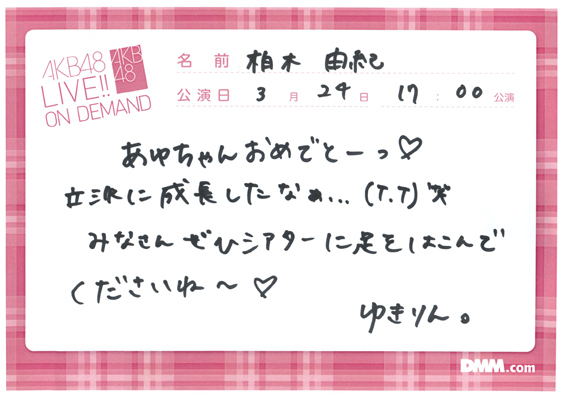 AKB48
LIVE!!
ON DEMAND
AKB
48
名前 柏木 由紀
公演日 3月24日 17:00公演
あゆちゃんおめでとーっ♡
立派に成長したなぁ...(T.T)笑
みなさんぜひシアターに足をはこんで
くださいね〜♡
ゆきりん。
DMM.com